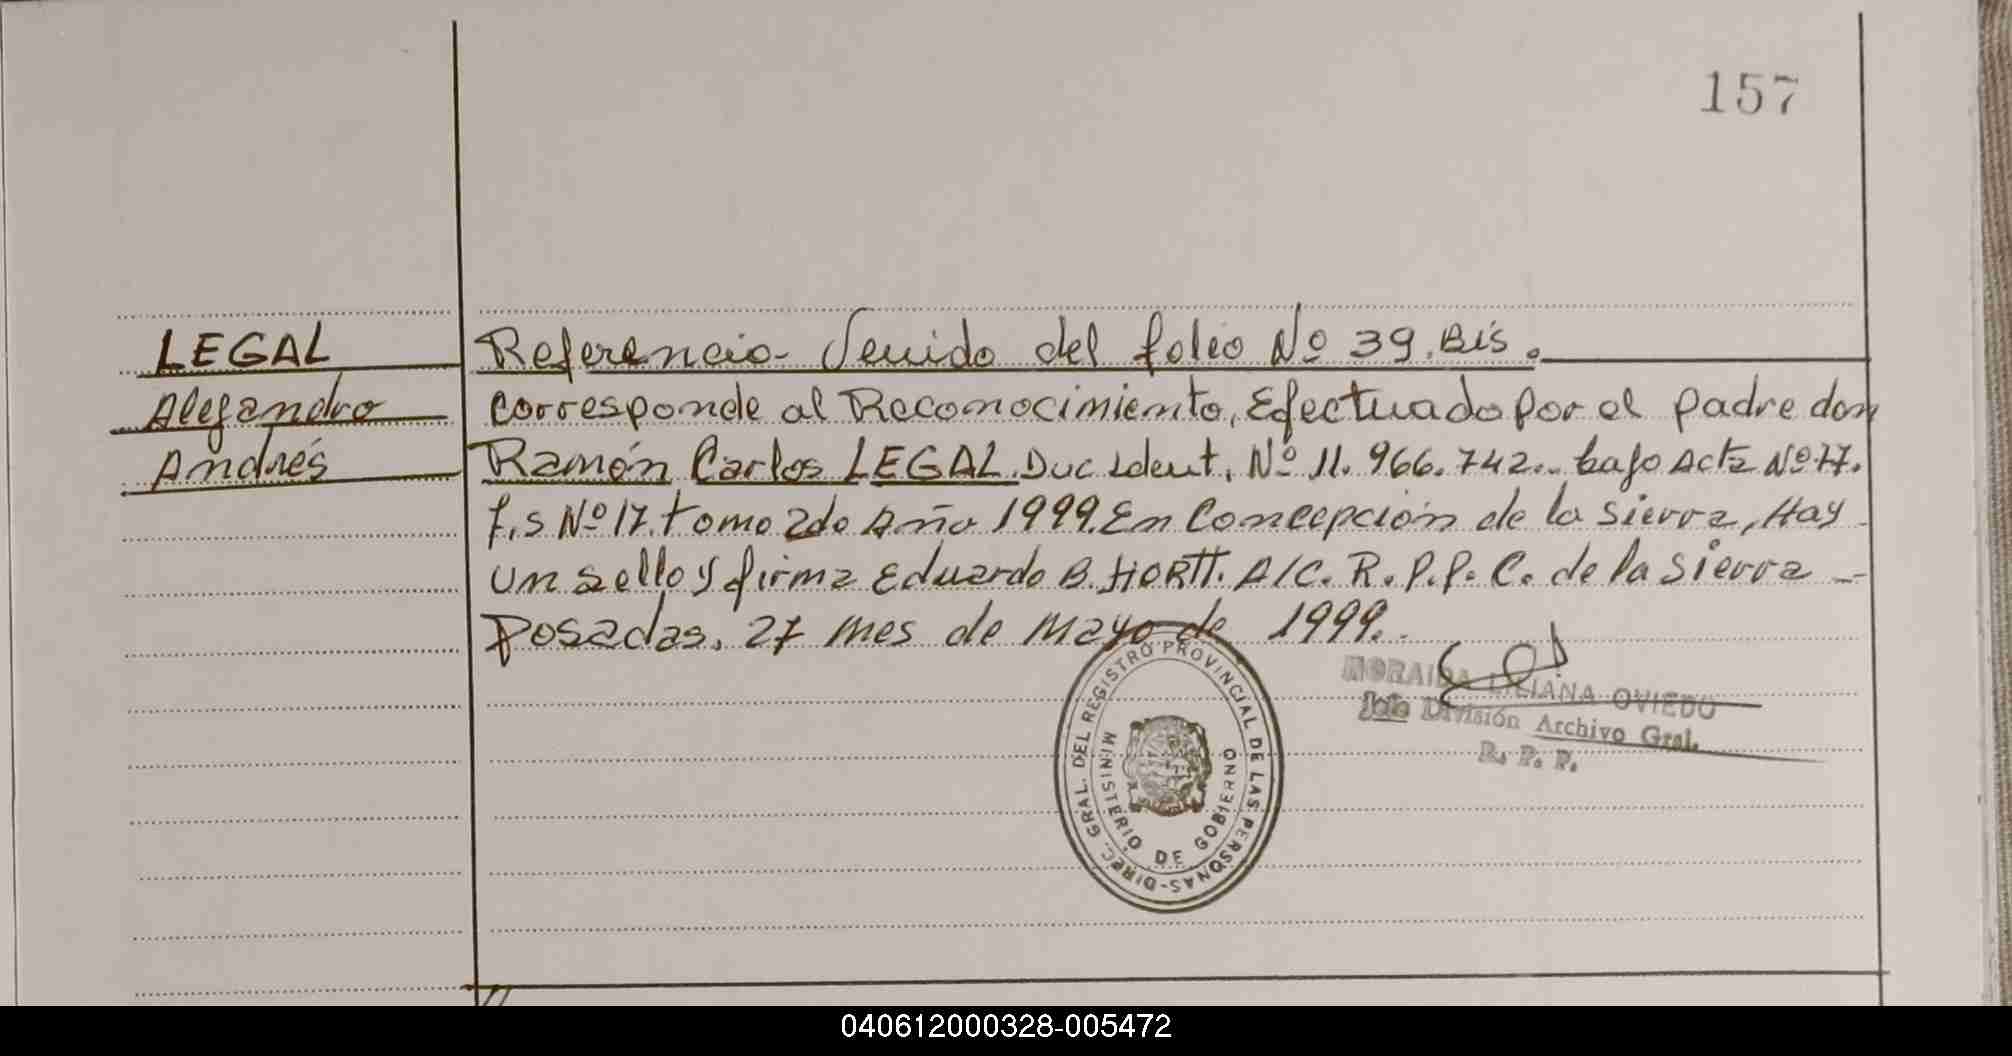 157
LEGAL
Alejandro
Andrés
Referencia Venido del folio Nº 39. Bis.
corresponde al Reconocimiento, Efectuado por el padre don
Ramón Carlos LEGAL. Duc ident. Nº 11. 966. 742.. bajo Acta Nº 17.
f.s Nº 17. tomo 2do Año 1999. En Concepción de la Sierra, Hay
un sello y firma Eduardo B. HORTT. A/C. R. P.P. C. de la Sierra -
Posadas. 27 mes de Mayo de 1999.
DIREC. GRAL. DEL REGISTRO PROVINCIAL DE LAS PERSONAS-
MINISTERIO DE GOBIERNO
LILIANA OVIEDO
Jefe División Archivo Gral.
R. P. P.
040612000328-005472